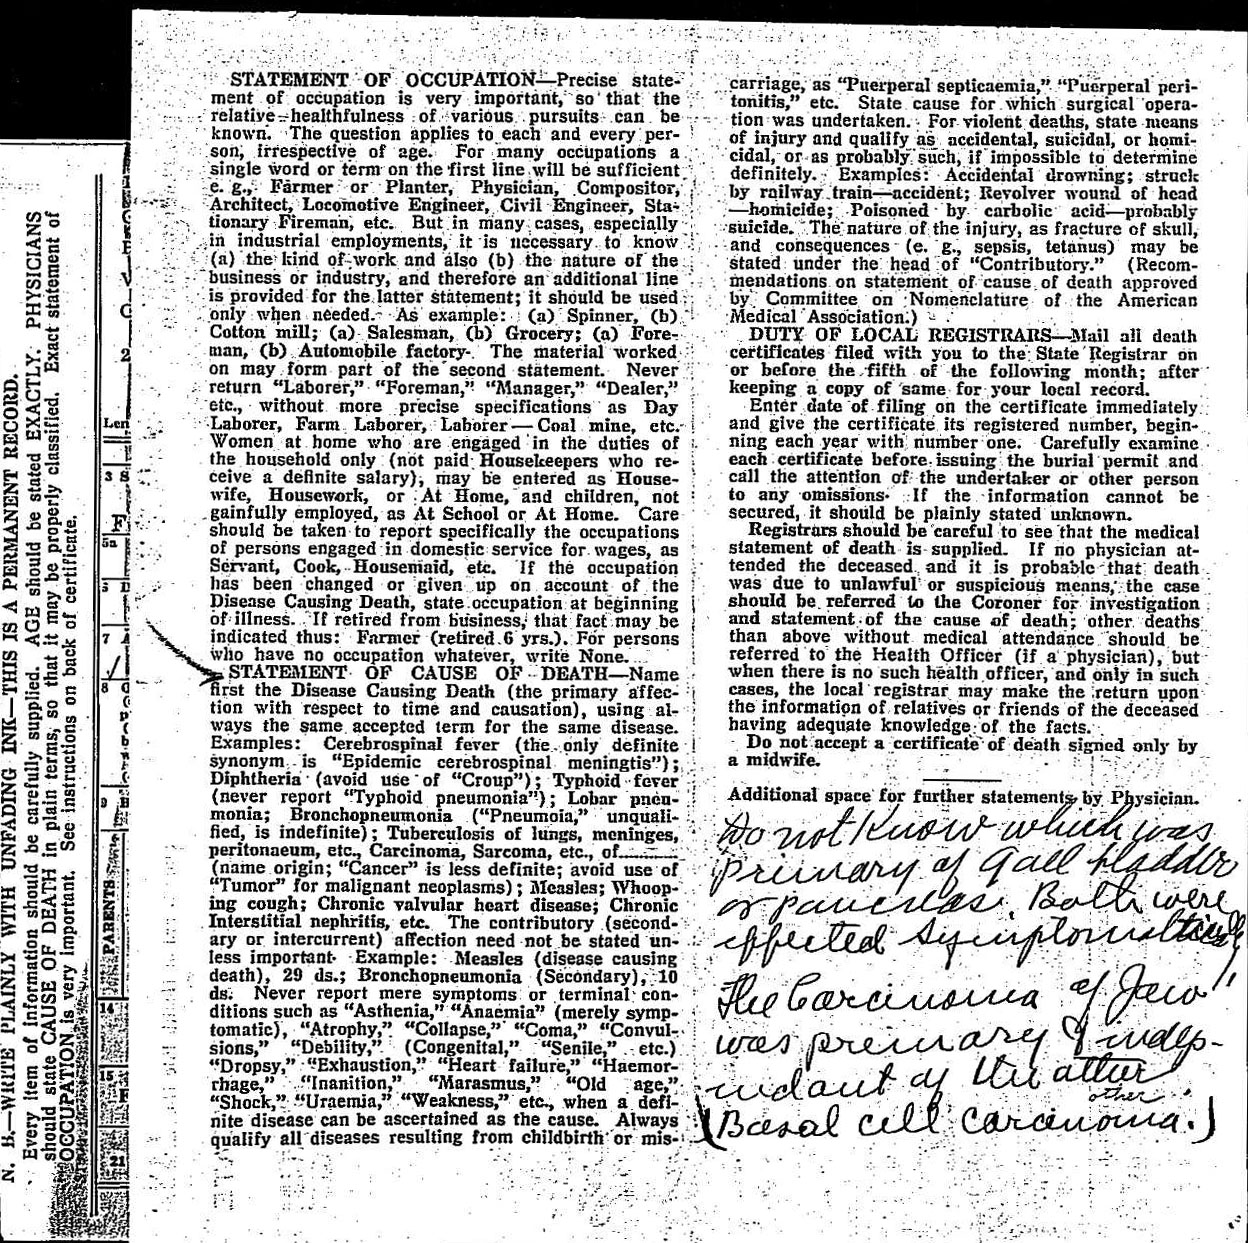 N. B.—WRITE PLAINLY WITH UNFADING INK—THIS IS A PERMANENT RECORD.
Every item of information should be carefully supplied. AGE should be stated EXACTLY. PHYSICIANS
should state CAUSE OF DEATH in plain terms, so that it may be properly classified. Exact statement of
OCCUPATION is very important. See instructions on back of certificate.
Len
3 S
F
5a
5 D
7 A
8
9
PARENTS
14
15
21
STATEMENT OF OCCUPATION—Precise state-
ment of occupation is very important, so that the
relative healthfulness of various pursuits can be
known. The question applies to each and every per-
son, irrespective of age. For many occupations a
single word or term on the first line will be sufficient
e. g., Farmer or Planter, Physician, Compositor,
Architect, Locomotive Engineer, Civil Engineer, Sta-
tionary Fireman, etc. But in many cases, especially
in industrial employments, it is necessary to know
(a) the kind of work and also (b) the nature of the
business or industry, and therefore an additional line
is provided for the latter statement; it should be used
only when needed. As example: (a) Spinner, (b)
Cotton mill; (a) Salesman, (b) Grocery; (a) Fore-
man, (b) Automobile factory. The material worked
on may form part of the second statement. Never
return "Laborer," "Foreman," "Manager," "Dealer,"
etc., without more precise specifications as Day
Laborer, Farm Laborer, Laborer—Coal mine, etc.
Women at home who are engaged in the duties of
the household only (not paid Housekeepers who re-
ceive a definite salary), may be entered as House-
wife, Housework, or At Home, and children, not
gainfully employed, as At School or At Home. Care
should be taken to report specifically the occupations
of persons engaged in domestic service for wages, as
Servant, Cook, Housemaid, etc. If the occupation
has been changed or given up on account of the
Disease Causing Death, state occupation at beginning
of illness. If retired from business, that fact may be
indicated thus: Farmer (retired 6 yrs.). For persons
who have no occupation whatever, write None.
STATEMENT OF CAUSE OF DEATH—Name
first the Disease Causing Death (the primary affec-
tion with respect to time and causation), using al-
ways the same accepted term for the same disease.
Examples: Cerebrospinal fever (the only definite
synonym is "Epidemic cerebrospinal meningtis");
Diphtheria (avoid use of "Croup"); Typhoid fever
(never report "Typhoid pneumonia"); Lobar pneu-
monia; Bronchopneumonia ("Pneumoia," unquali-
fied, is indefinite); Tuberculosis of lungs, meninges,
peritonaeum, etc., Carcinoma, Sarcoma, etc., of........
(name origin; "Cancer" is less definite; avoid use of
"Tumor" for malignant neoplasms); Measles; Whoop-
ing cough; Chronic valvular heart disease; Chronic
Interstitial nephritis, etc. The contributory (second-
ary or intercurrent) affection need not be stated un-
less important. Example: Measles (disease causing
death), 29 ds.; Bronchopneumonia (Secondary), 10
ds. Never report mere symptoms or terminal con-
ditions such as "Asthenia," "Anaemia" (merely symp-
tomatic), "Atrophy," "Collapse," "Coma," "Convul-
sions," "Debility," (Congenital," "Senile," etc.)
"Dropsy," "Exhaustion," "Heart failure," "Haemor-
rhage," "Inanition," "Marasmus," "Old age,"
"Shock," "Uraemia," "Weakness," etc., when a defi-
nite disease can be ascertained as the cause. Always
qualify all diseases resulting from childbirth or mis-
carriage, as "Puerperal septicaemia," "Puerperal peri-
tonitis," etc. State cause for which surgical opera-
tion was undertaken. For violent deaths, state means
of injury and qualify as accidental, suicidal, or homi-
cidal, or as probably such, if impossible to determine
definitely. Examples: Accidental drowning; struck
by railway train—accident; Revolver wound of head
—homicide; Poisoned by carbolic acid—probably
suicide. The nature of the injury, as fracture of skull,
and consequences (e. g., sepsis, tetanus) may be
stated under the head of "Contributory." (Recom-
mendations on statement of cause of death approved
by Committee on Nomenclature of the American
Medical Association.)
DUTY OF LOCAL REGISTRARS—Mail all death
certificates filed with you to the State Registrar on
or before the fifth of the following month; after
keeping a copy of same for your local record.
Enter date of filing on the certificate immediately
and give the certificate its registered number, begin-
ning each year with number one. Carefully examine
each certificate before issuing the burial permit and
call the attention of the undertaker or other person
to any omissions. If the information cannot be
secured, it should be plainly stated unknown.
Registrars should be careful to see that the medical
statement of death is supplied. If no physician at-
tended the deceased and it is probable that death
was due to unlawful or suspicious means, the case
should be referred to the Coroner for investigation
and statement of the cause of death; other deaths
than above without medical attendance should be
referred to the Health Officer (if a physician), but
when there is no such health officer, and only in such
cases, the local registrar may make the return upon
the information of relatives or friends of the deceased
having adequate knowledge of the facts.
Do not accept a certificate of death signed only by
a midwife.
Additional space for further statements by Physician.
Do not Know which was
primary of Gall bladder
or pancreas. Both were
effected symptomatically
The Carcinoma of Jaw
was primary & indep-
endant of the other
other
(Basal cell carcinoma.)